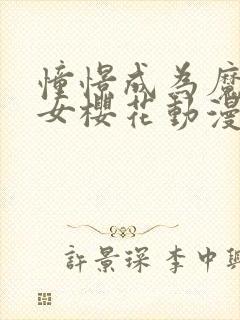 憧憬成為魔
女櫻花動漫
許景琛 李中興